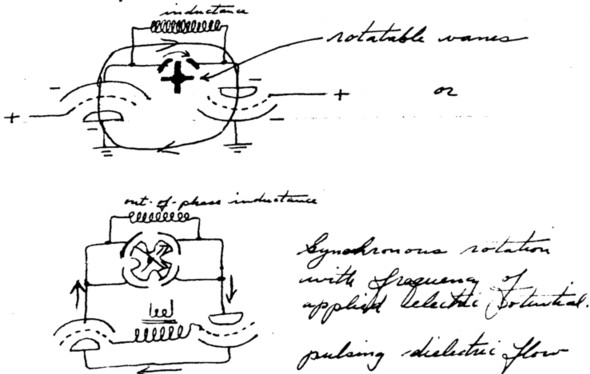 inductance
rotatable vanes
or
out-of-phase inductance
Synchronous rotation
with frequency of
applied electric potential.
pulsing dielectric flow